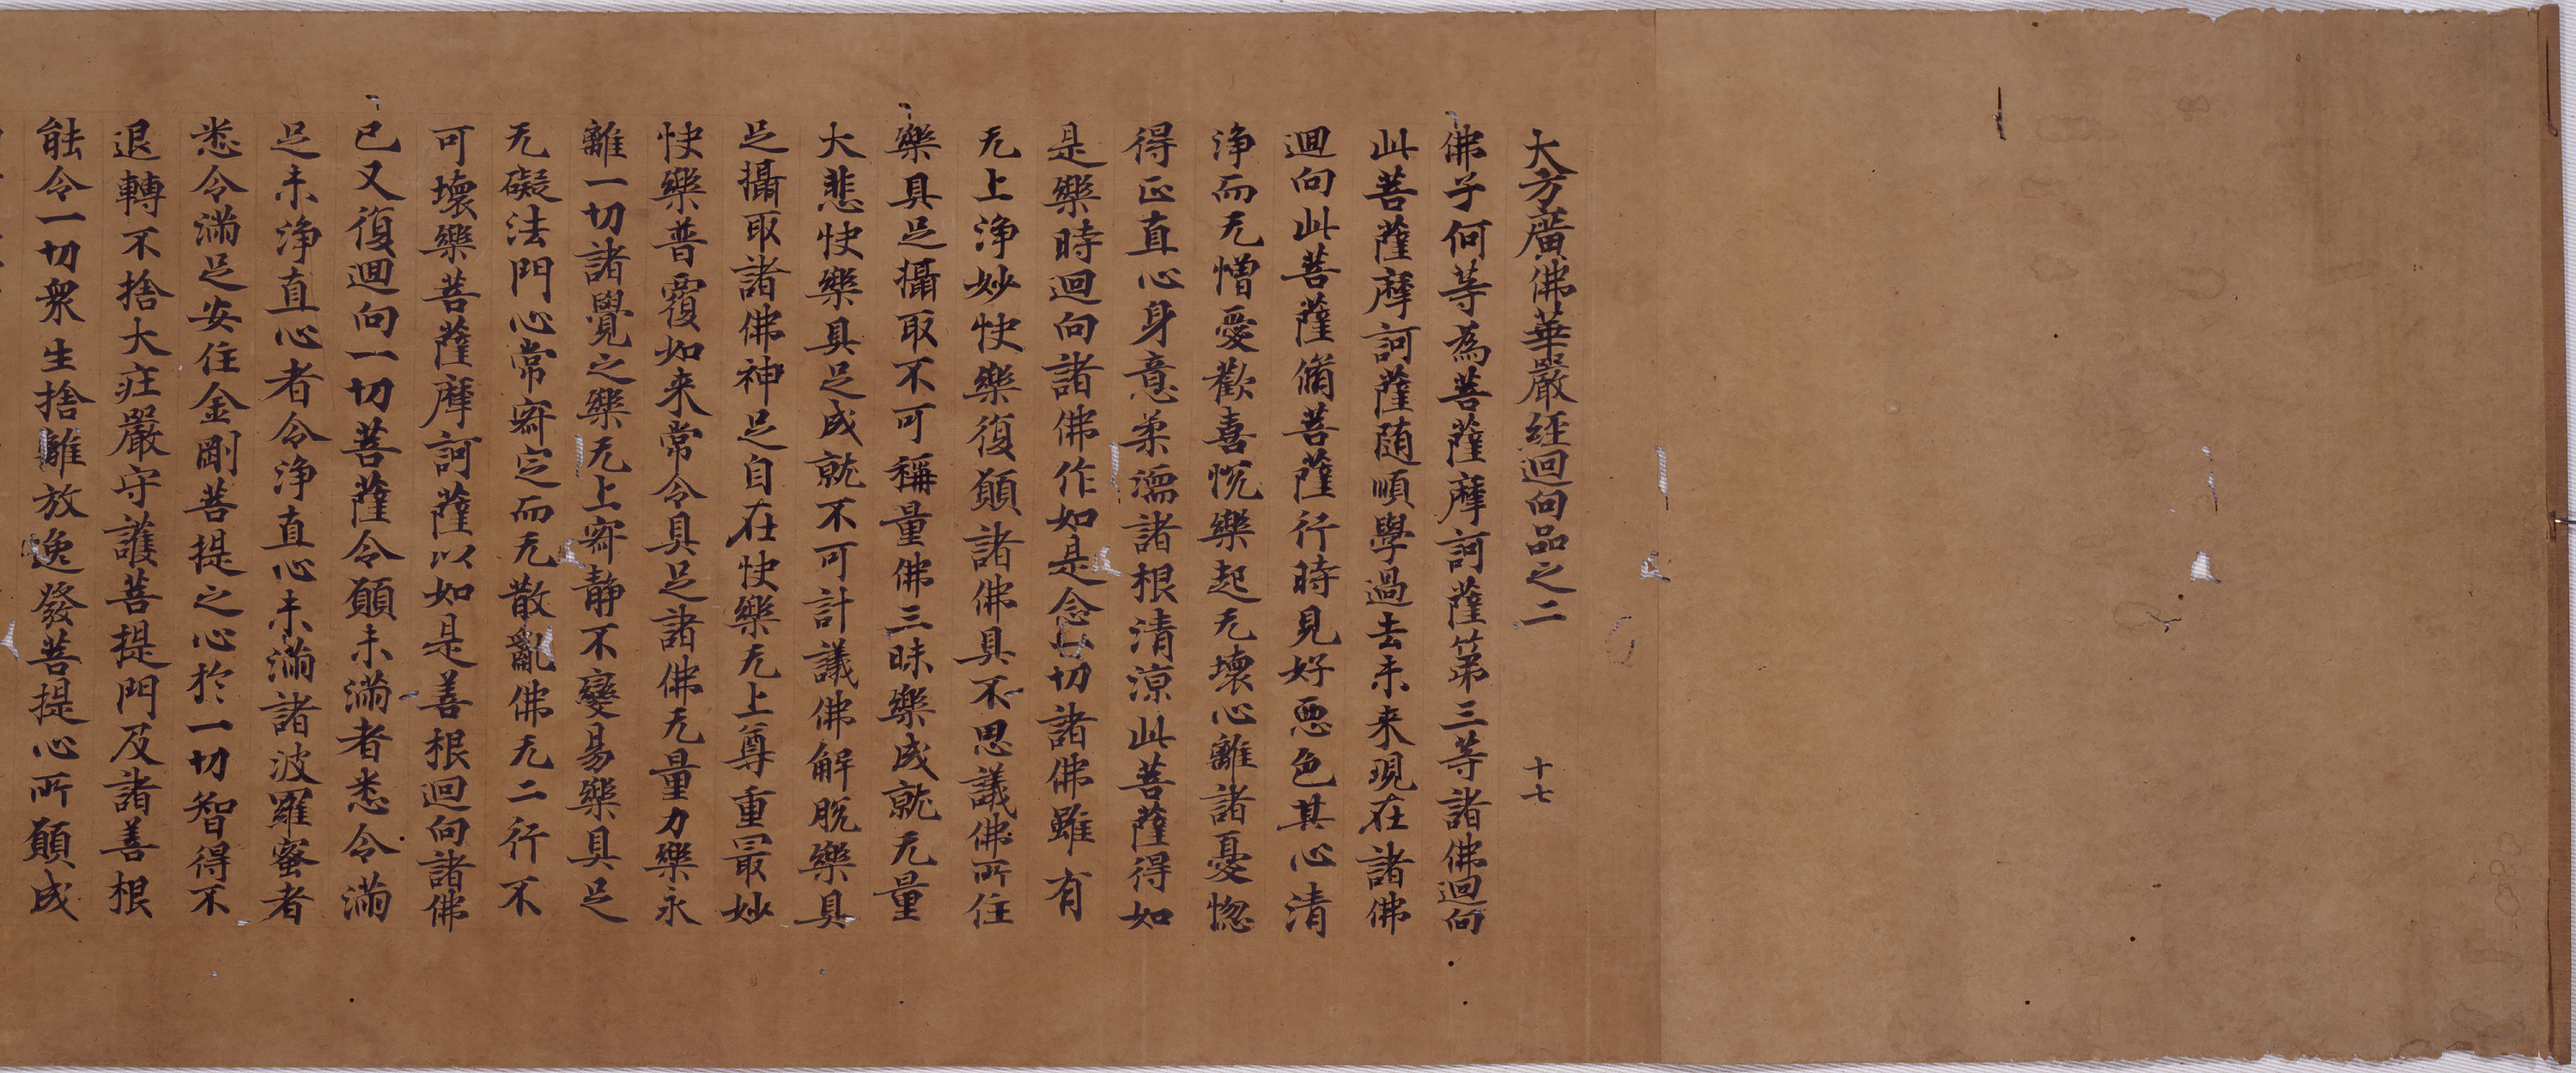 大方廣佛華嚴經迴向品之二 十七
佛子何等為菩薩摩訶薩第三等諸佛迴向
此菩薩摩訶薩随順學過去未来現在諸佛
迴向此菩薩脩菩薩行時見好惡色其心清
淨而无憎愛歡喜恱樂起无壞心離諸憂惱
得正直心身意柔濡諸根清涼此菩薩得如
是樂時迴向諸佛作如是念一切諸佛雖有
无上淨妙快樂復願諸佛具不思議佛所住
樂具足攝取不可稱量佛三昧樂成就无量
大悲快樂具足成就不可計議佛解脫樂具
足攝取諸佛神足自在快樂无上尊重最妙
快樂普覆如来常令具足諸佛无量力樂永
離一切諸覺之樂无上寂静不變易樂具足
无礙法門心常寂定而无散亂佛无二行不
可壞樂菩薩摩訶薩以如是善根迴向諸佛
已又復迴向一切菩薩令願未滿者悉令滿
足未淨直心者令淨直心未滿諸波羅蜜者
悉令滿足安住金剛菩提之心於一切智得不
退轉不捨大莊嚴守護菩提門及諸善根
能令一切衆生捨離放逸發菩提心所願成